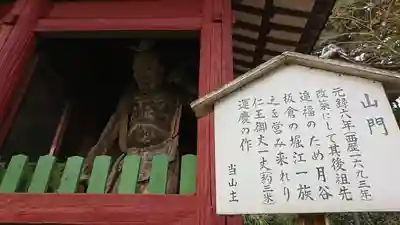 山門
元禄六年酉歴一六九三年
改築にして其後祖先
追福のため月谷
板倉の堀江一族
之を営み来れり
仁王御丈一丈(約三米)
運慶の作
当山主